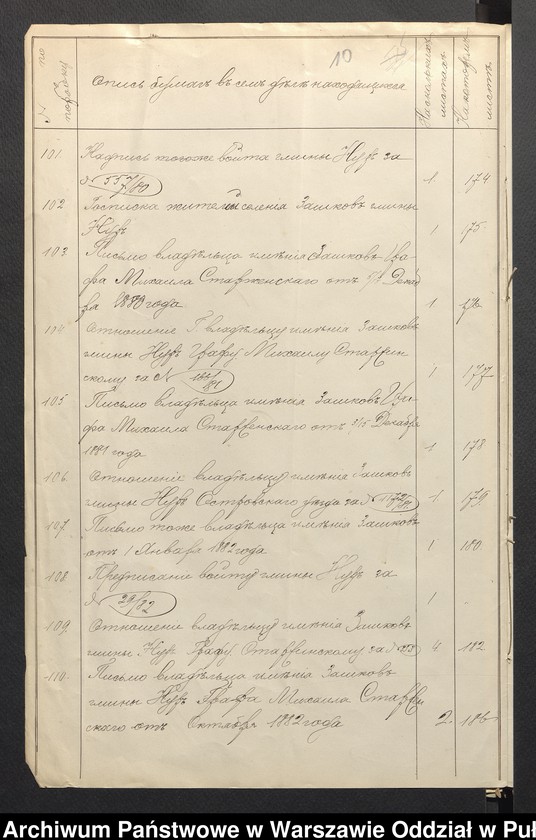 10
№ по порядку
Опись бумагъ въ семъ дѣлѣ находящихся
На сколькихъ листахъ
На которомъ листѣ
101 Надпись тогоже войта гмины Нуръ за
№ 557/80 1 174
102 Росписка жителей селенія Зашковъ гмины
Нуръ 1 175
103 Письмо владѣльца имѣнія Зашковъ Гра-
фа Михаила Старженскаго отъ Декаб
ря 1880 года 1 176
104 Отношеніе Г. владѣльцу имѣнія Зашковъ
гмины Нуръ Графу Михаилу Старжин
скому за № 1 177
105 Письмо владѣльца имѣнія Зашковъ Гра-
фа Михаила Старженскаго отъ 3/15 Декабря
1881 года 1 178
106 Отношеніе владѣльцу имѣнія Зашковъ
гмины Нуръ Островскаго уѣзда за № 1 179
107 Письмо тоже владѣльца имѣнія Зашковъ
отъ 1 Января 1882 года 1 180
108 Предписаніе войту гмины Нуръ за
№ 29/82 1
109 Отношеніе владѣльцу имѣнія Зашковъ
гмины Нуръ Графу Старжинскому за № 4 182
110 Письмо владѣльца имѣнія Зашковъ
гмины Нуръ Графа Михаила Старжин
скаго отъ Октября 1882 года 2 186
Archiwum Państwowe w Warszawie Oddział w Puł